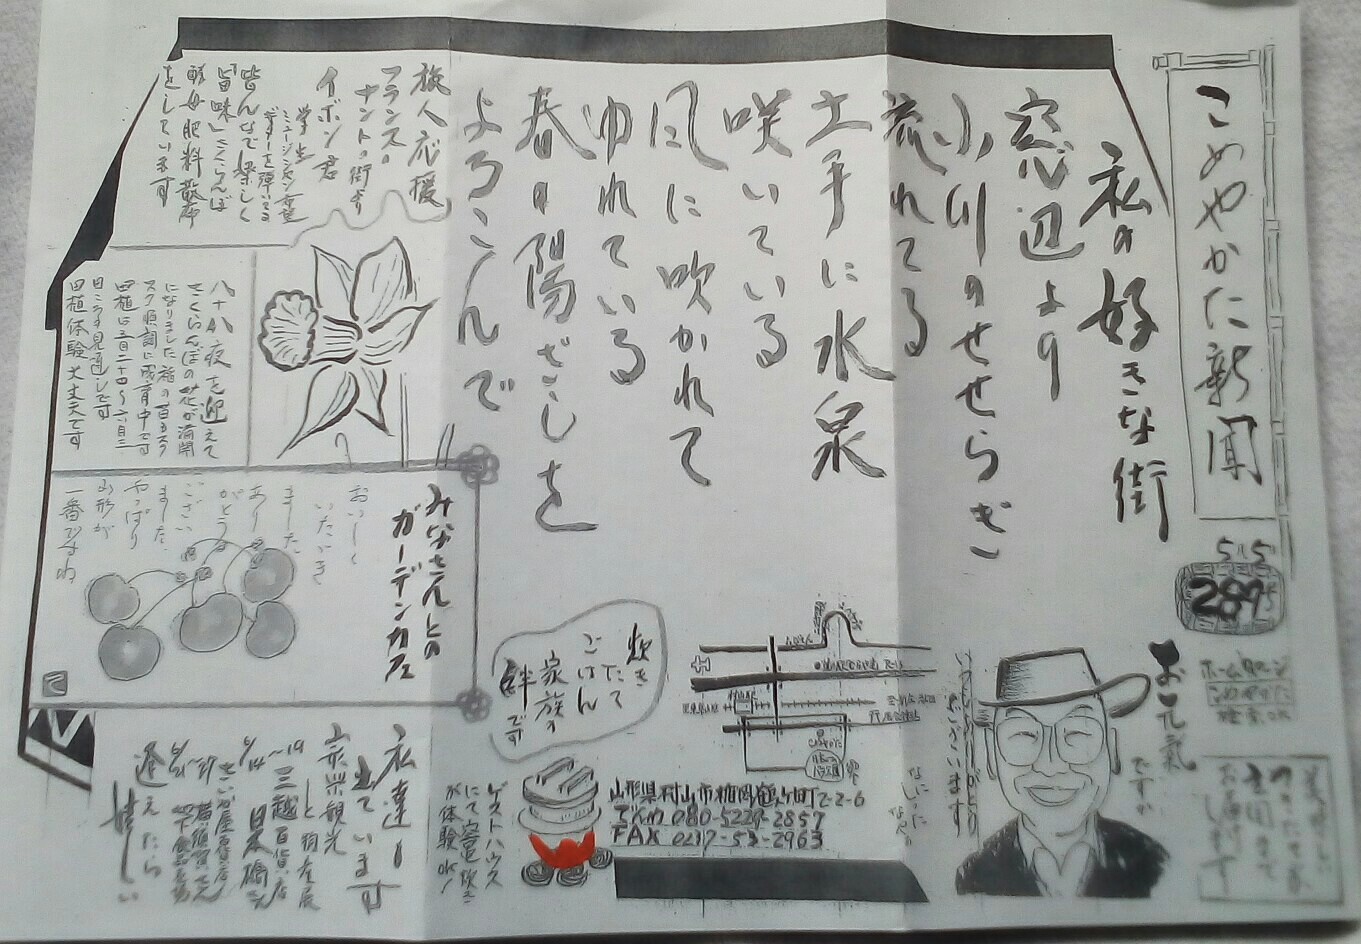 こめやかた新聞
5/15
287号
ホームページ
こめやかた
検索OK
お元気
ですか
いつもありがとう
ございます
私の好きな街
窓辺より
小川のせせらぎ
流れてる
土手に水泉
咲いている
風に吹かれて
ゆれている
春の陽ざしを
よろこんで
旅人応援
フランスの
ナントの街より
イボン君
学生
ミュージシャン希望
ギターを弾いてる
皆んなで楽しく
旨味さくらんぼ
酵母肥料散布
をしています
八十八夜を迎えて
さくらんぼの花が満開
になりました稲の苗もスク
スク順調に成育中です
田植は五月二十四〜六月三
日ごろの見通しです
田植体験大丈夫です
みなさんとの
ガーデンカフェ
おいしく
いただき
ました
ありがとう
ござい
ました
やっぱり
山形が
一番ですね
炊き
たて
ごはん
家族の
絆です
ゲストハウス
にて宮竃炊き
が体験OK!
山形県村山市楯岡鶴ヶ町2-2-6
でんわ 080-5229-2857
FAX 0237-53-2963
私達も
出ています
奈米観光
と物産展
6/14〜19 三越百貨店
日本橋さん
6/21〜27 さいか屋百貨店
横須賀さん
逢えたら
嬉しい